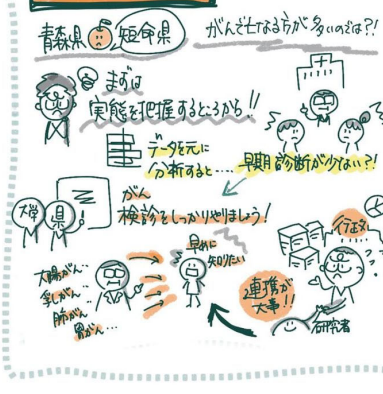 青森県 短命県
がんで亡くなる方が多いのでは?!
まずは
実態を把握するところから!!
データを元に
分析すると....早期診断が少ない?!
大学 県
がん
検診をしっかりやりましょう!
早めに
知りたい
大腸がん..
乳がん..
肺がん
胃がん...
連携が
大事!!
行政
研究者